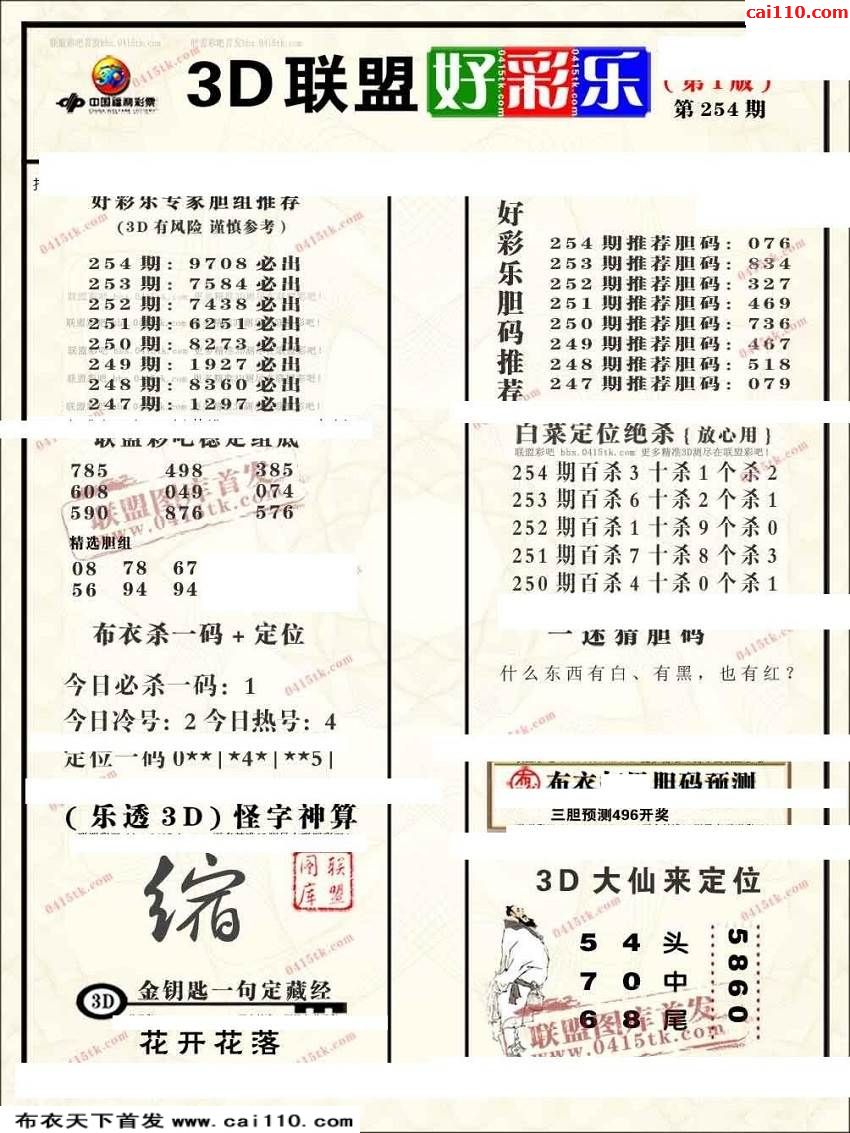 cai110.com
中国福利彩票
3D联盟好彩乐
(第1版)
第254期
好彩乐专家胆组推荐
(3D有风险 谨慎参考)
254期: 9708必出
253期: 7584必出
252期: 7438必出
251期: 6251必出
250期: 8273必出
249期: 1927必出
248期: 8360必出
247期: 1297必出
联盟彩吧稳定组底
785 498 385
608 049 074
590 876 576
精选胆组
08 78 67
56 94 94
布衣杀一码+定位
今日必杀一码: 1
今日冷号: 2 今日热号: 4
定位一码 0**|*4*|**5|
(乐透3D)怪字神算
缩
联盟图库
3D 金钥匙一句定藏经
花开花落
好彩乐胆码推荐
254期推荐胆码: 076
253期推荐胆码: 834
252期推荐胆码: 327
251期推荐胆码: 469
250期推荐胆码: 736
249期推荐胆码: 467
248期推荐胆码: 518
247期推荐胆码: 079
白菜定位绝杀{放心用}
联盟彩吧 bbs.0415tk.com 更多精准3D测尽在联盟彩吧!
254期百杀3十杀1个杀2
253期百杀6十杀2个杀1
252期百杀1十杀9个杀0
251期百杀7十杀8个杀3
250期百杀4十杀0个杀1
一迷猜胆码
什么东西有白、有黑，也有红?
三胆预测496开奖
3D大仙来定位
5 4 头
7 0 中
6 8 尾
5860
联盟图库首发
www.0415tk.com
布衣天下首发 www.cai110.com